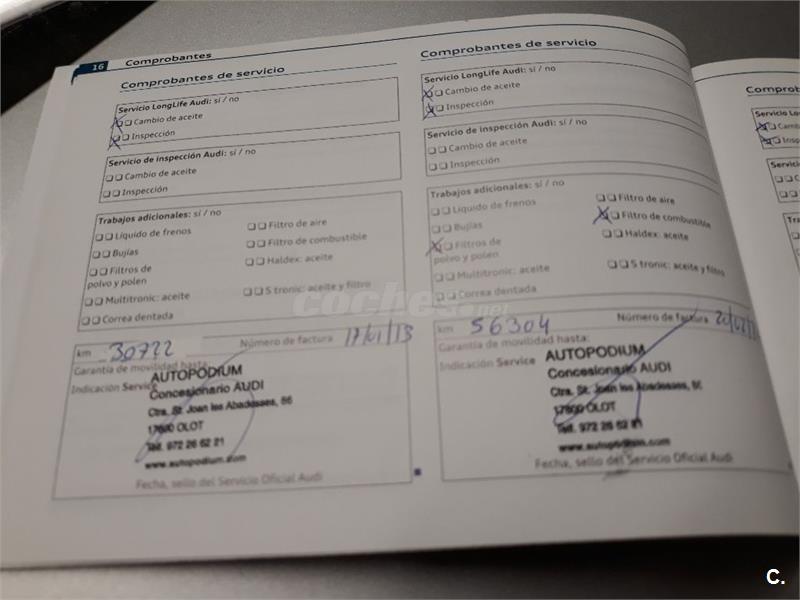 16 Comprobantes
Comprobantes de servicio
Servicio LongLife Audi: sí / no
Cambio de aceite
Inspección
Servicio de inspección Audi: sí / no
Cambio de aceite
Inspección
Trabajos adicionales: sí / no
Líquido de frenos
Bujías
Filtros de
polvo y polen
Multitronic: aceite
Correa dentada
Filtro de aire
Filtro de combustible
Haldex: aceite
S tronic: aceite y filtro
km 30722 Número de factura 17/01/13
Garantía de movilidad hasta:
Indicación Service
AUTOPODIUM
Concesionario AUDI
Ctra. St. Joan les Abadesses, 86
17800 OLOT
Tel. 972 26 62 21
www.autopodium.com
Fecha, sello del Servicio Oficial Audi
Comprobantes de servicio
Servicio LongLife Audi: sí / no
Cambio de aceite
Inspección
Servicio de inspección Audi: sí / no
Cambio de aceite
Inspección
Trabajos adicionales: sí / no
Líquido de frenos
Bujías
Filtros de
polvo y polen
Multitronic: aceite
Correa dentada
Filtro de aire
Filtro de combustible
Haldex: aceite
S tronic: aceite y filtro
km 56304 Número de factura
Garantía de movilidad hasta:
Indicación Service
AUTOPODIUM
Concesionario AUDI
Ctra. St. Joan les Abadesses, 86
17800 OLOT
Tel. 972 26 62 21
www.autopodium.com
Fecha, sello del Servicio Oficial Audi
Comprob
Servicio Lo
Camb
Insp
Servicio
coches.net
C.